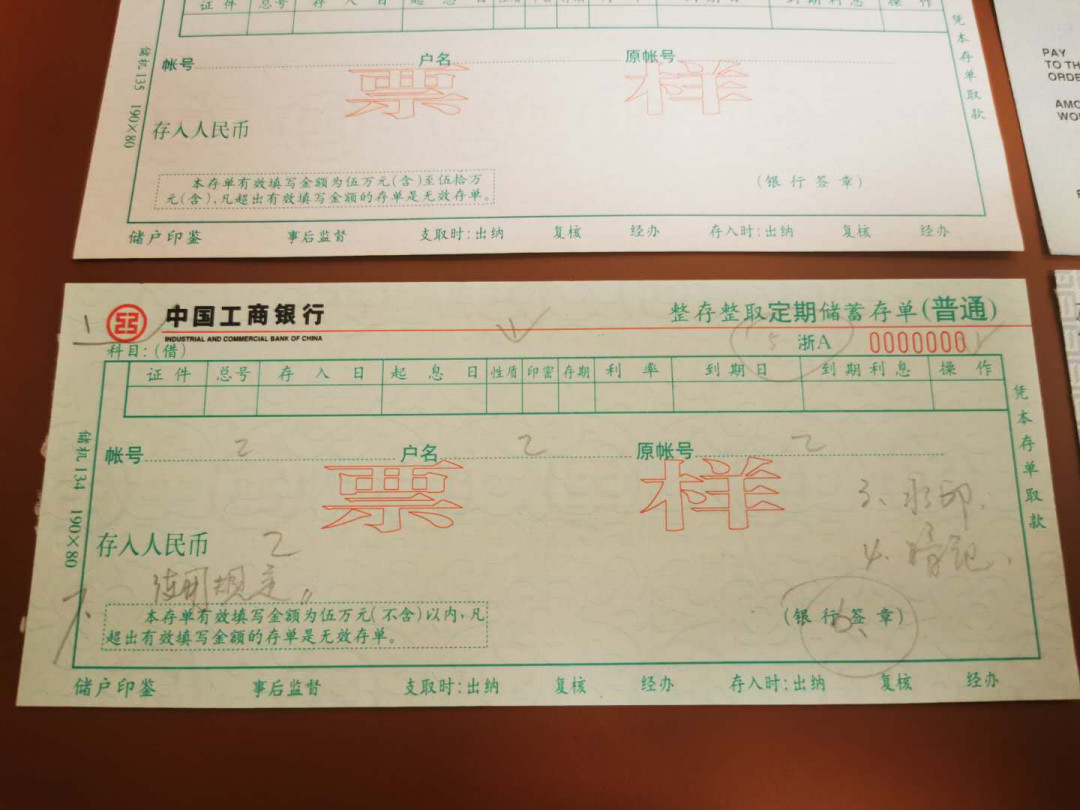 证件 总号 存入日 起息日 性质 印密 存期 利率 到期日 到期利息 操作
帐号 户名 原帐号
票样
存入人民币
本存单有效填写金额为伍万元(含)至伍拾万
元(含),凡超出有效填写金额的存单是无效存单。
(银行签章)
储户印鉴 事后监督 支取时:出纳 复核 经办 存入时:出纳 复核 经办
储机135 190×80
凭本存单取款
PAY
TO TH
ORDE
AMO
WO
1
中国工商银行
INDUSTRIAL AND COMMERCIAL BANK OF CHINA
整存整取定期储蓄存单(普通)
科目:(借)
5 浙A 0000000
证件 总号 存入日 起息日 性质 印密 存期 利率 到期日 到期利息 操作
帐号 2 户名 2 原帐号 2
票样
3、水印、
存入人民币 2
4、暗记、
使用规定
7、
本存单有效填写金额为伍万元(不含)以内,凡
超出有效填写金额的存单是无效存单。
(银行签章)
6、
储户印鉴 事后监督 支取时:出纳 复核 经办 存入时:出纳 复核 经办
储机134 190×80
凭本存单取款